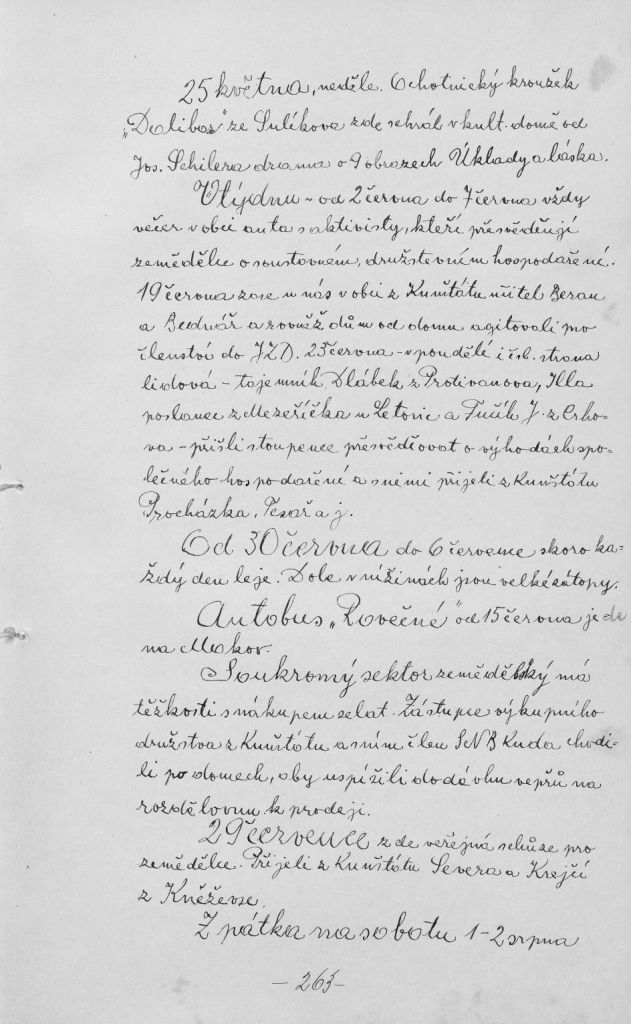 25 května, neděle. Ochotnický kroužek
„Dalibor" ze Sulíkova zde sehrál v kult. domě od
Jos. Schilera drama o 9 obrazech Úklady a láska.
V týdnu - od 2 června do 7 června vždy
večer v obci auta s aktivisty, kteří přesvědčují
zemědělce o soustavném, družstevním hospodaření.
19 června zase u nás v obci z Kunštátu učitel Beran
a Bednář a rovněž dům od domu agitovali pro
členství do JZD. 23 června - v pondělí i čsl. strana
lidová - tajemník Dlábek z Protivanova, Illa
poslanec z Meziříčka u Letovic a Fučík J. z Crho-
va - přišli stoupence přesvědčovat o výhodách spo-
lečného hospodaření a s nimi přijeli z Kunštátu
Procházka, Tesař a j.
Od 30 června do 6 července skoro ka-
ždý den leje. Dole v nížinách jsou velké zátopy.
Autobus „Rovečné" od 15 června jede
na Mokov.
Soukromý sektor zemědělský má
těžkosti s nákupem selat. Zástupce výkupního
družstva z Kunštátu a s ním člen SNB Kuda chodi-
li po domech, aby uspíšili dodávku vepřů na
rozdělovnu k prodeji.
29 července zde veřejná schůze pro
zemědělce. Přijeli z Kunštátu Severa a Krejčí
z Kněževse.
Z pátka na sobotu 1-2 srpna
- 263 -